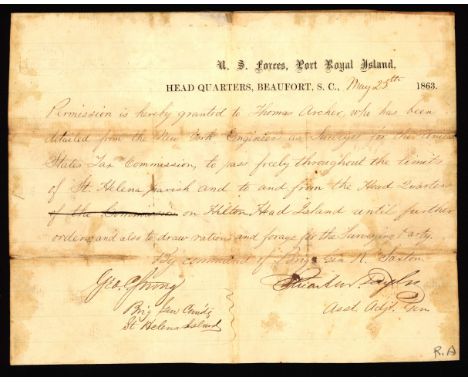 U. S. Forces, Port Royal Island,
HEAD QUARTERS, BEAUFORT, S. C., May 25th 1863.
Permission is hereby granted to Thomas Archer, who has been
detailed from the New York Engineers as Surveyor for the United
States Tax Commission, to pass freely throughout the limits
of St Helena parish and to and from the Head Quarters
of the Commission on Hilton Head Island until further
orders and also to draw rations and forage for the Surveying Party.
By command of Brig Gen R. Saxton
Geo. C. Strong
Brig Gen Comdg
St Helena Island
Asst. Adjt. Gen
R.A